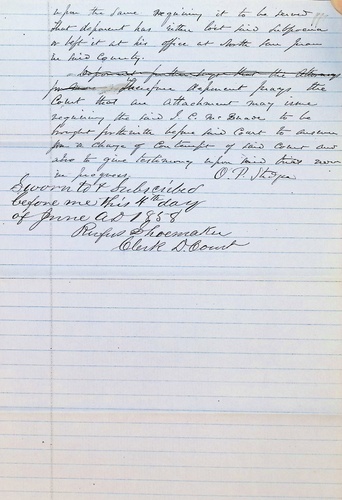 upon the same requiring it to be served
that deponent has either lost said subpoena
or left it at his office at North San Juan
in said County.
Deponent further says that the Attorney
Therefore Deponent prays, the
Court that an attachment may issue
requiring the said J. C. McBurne to be
brought forthwith before said Court to answer
for a charge of Contempt of said Court and
also to give testimony upon said trial now
in progress O. P. Stidger
Sworn to & Subscribed
before me this 4th day
of June AD 1858
Rufus Shoemaker
Clerk D. Court